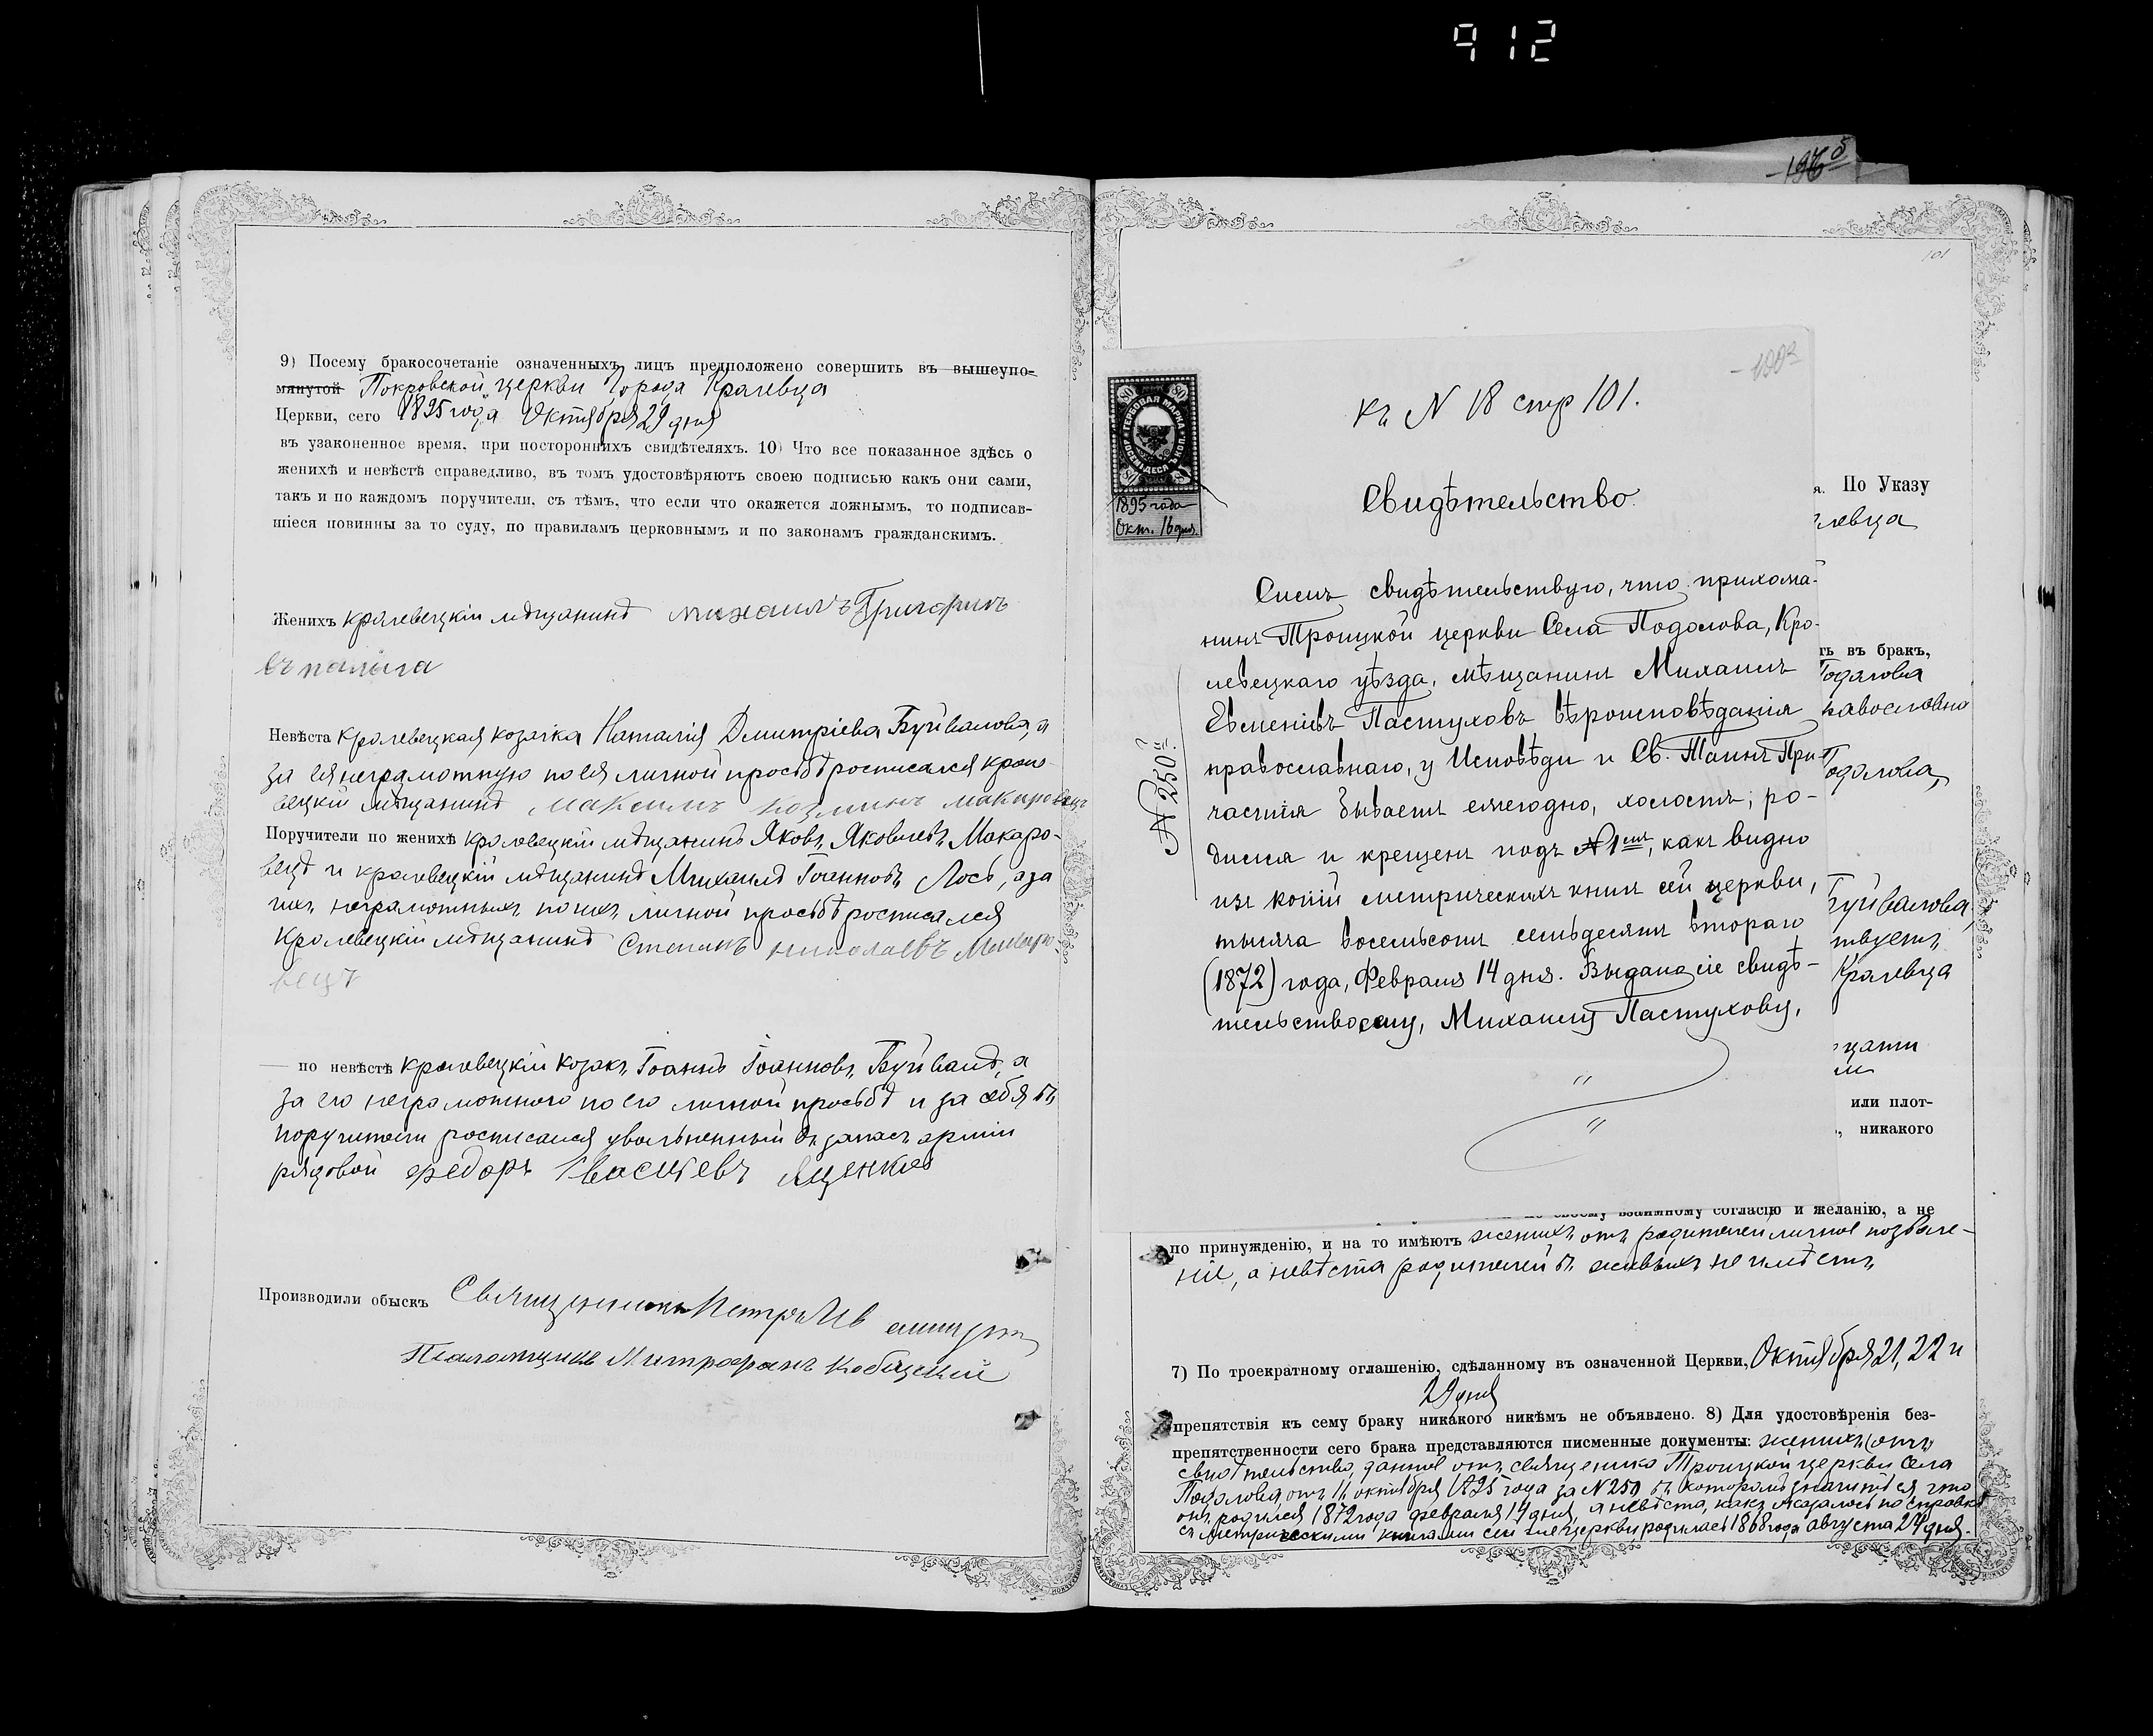 912
9) Посему бракосочетаніе означенныхъ лицъ предположено совершить въ вышеупо=
мянутой Покровской церкви Города Кролевца
Церкви, сего 1895 года Октября 29 дня
въ узаконенное время, при постороннихъ свидѣтеляхъ. 10) Что все показанное здѣсь о
женихѣ и невѣстѣ справедливо, въ томъ удостовѣряютъ своею подписью какъ они сами,
такъ и по каждомъ поручители, съ тѣмъ, что если что окажется ложнымъ, то подписав-
шіеся повинны за то суду, по правиламъ церковнымъ и по законамъ гражданскимъ.
Женихъ кролевецкій мѣщанинъ михаилъ Григориевъ
Невѣста кролевецкая козачка Наталія Дмитріева Буйвалова, а
за ея неграмотную по ея личной просьбѣ росписался кроле-
вецкій мѣщанинъ максимъ козминъ макаровецъ
Поручители по женихѣ кролевецкій мѣщанинъ Яковъ Яковлевъ Макаро-
вецъ и кролевецкій мѣщанинъ Михаилъ Іоанновъ Лось, а за
ихъ неграмотныхъ по ихъ личной просьбѣ росписался
Кролевецкій мѣщанинъ Степанъ николаевъ Макаро-
вецъ
по невѣстѣ кролевецкій козакъ Іоаннъ Іоанновъ Буйвалъ, а
за его неграмотного по его личной просьбѣ и за себя въ
поручители росписался уволенный въ запасъ арміи
рядовой федоръ Ященко
Производили обыскъ Священникъ Петръ
Псаломщикъ Митрофанъ Кобыцкій
101
къ N 18 стр 101.
Свидѣтельство.
1895 года
Окт. 16 дня.
N 250й
Симъ свидѣтельствую, что прихожа-
нинъ Троицкой церкви Села Подолова, Кро-
левецкаго уѣзда, мѣщанинъ Михаилъ
Пастуховъ вѣроисповѣданія
православнаго, у Исповѣди и Св. Таинъ При-
частія бываетъ ежегодно, холостъ; ро-
дился и крещенъ подъ N 1мъ, какъ видно
изъ копій метрическихъ книгъ сей церкви,
тысяча восемьсотъ семьдесятъ втораго
(1872) года, Февраля 14 дня. Выдано сіе свидѣ-
тельство ему, Михаилу Пастухову,
я. По Указу
левца
ть въ бракъ,
Подолова
равославно
Подолова,
Буйвалова,
твуетъ
Кролевца
цати
или плот-
никакого
взаимному согласію и желанію, а не
по принужденію, и на то имѣютъ женихъ отъ родителей личное позволе-
ніе, а невѣста родителей въ живыхъ не имѣетъ
7) По троекратному оглашенію, сдѣланному въ означенной Церкви, Октября 21, 22 и
29 дня
препятствія къ сему браку никакого никѣмъ не объявлено. 8) Для удостовѣренія без-
препятственности сего брака представляются писменные документы: женихъ
свидѣтельство, данное отъ священника Троицкой церкви Села
Подолова, отъ октября 1895 года за N 250 въ которомъ значится что
онъ родился 1872 года февраля 14 дня, а невѣста, какъ оказалось по справкѣ
съ Метрическими книгами сей церкви родилась 1868 года августа 24 дня.